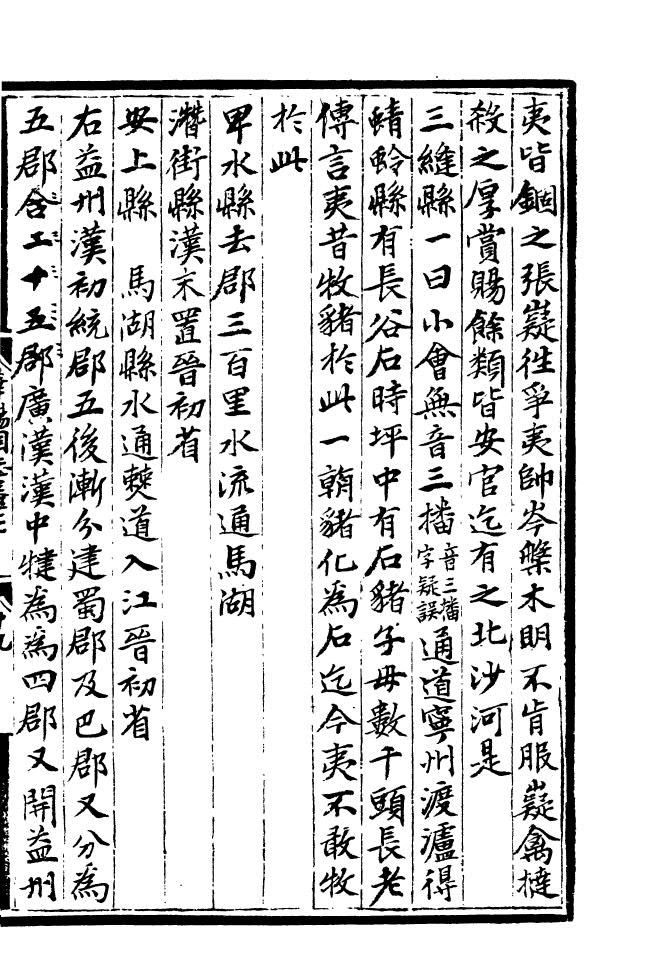 夷皆錮之張嶷徃爭夷帥岑槃木明不肯服嶷禽撻
殺之厚賞賜餘類皆安官迄有之北沙河是
三縫縣一曰小會無音三播音三播字疑誤通道寧州渡瀘得
蜻蛉縣有長谷石時坪中有石豬子母數千頭長老
傳言夷昔牧豬於此一朝豬化為石迄今夷不敢牧
於此
卑水縣去郡三百里水流通馬湖
潛街縣漢末置晉初省
安上縣　馬湖縣水通僰道入江晉初省
右益州漢初統郡五後漸分建蜀郡及巴郡又分為
五郡合二十五郡廣漢漢中犍為為四郡又開益州